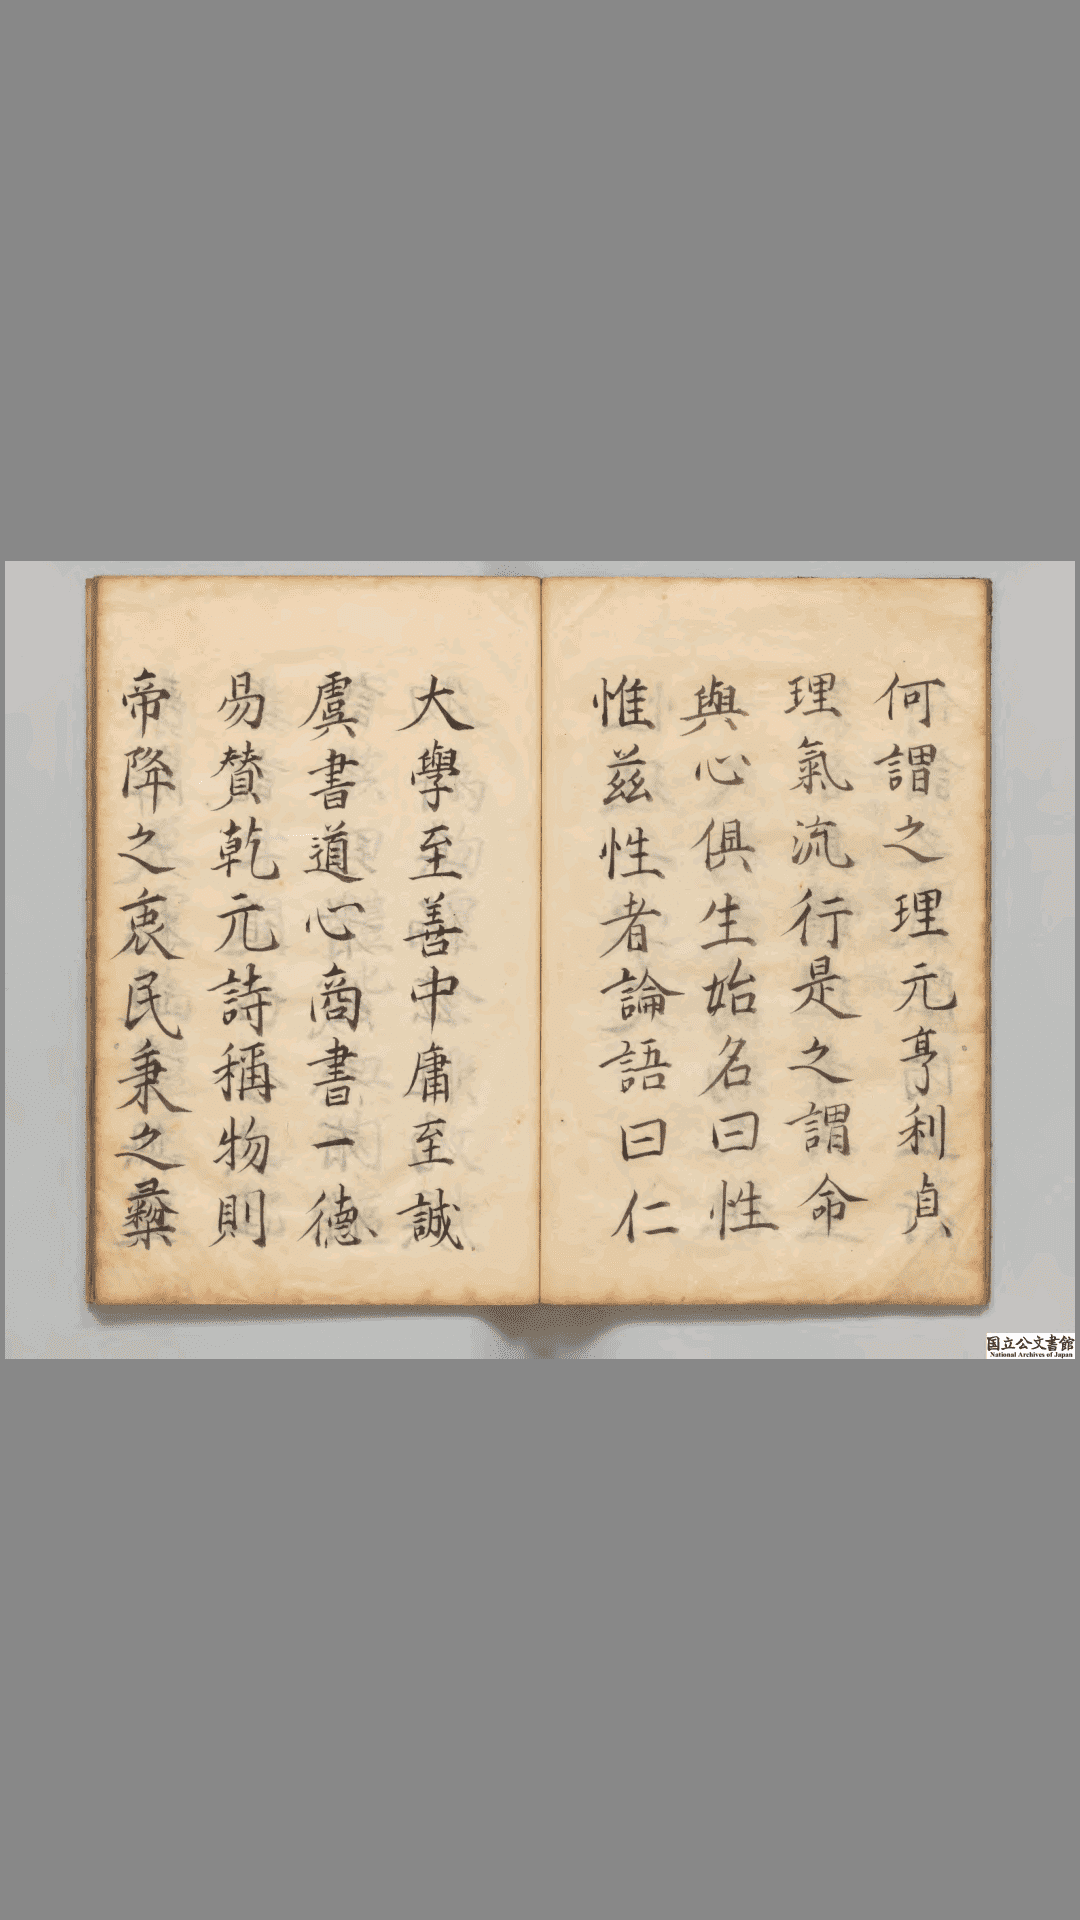 何謂之理元亨利貞
理氣流行是之謂命
與心俱生始名曰性
惟茲性者論語曰仁
大學至善中庸至誠
虞書道心商書一德
易賛乾元詩稱物則
帝降之衷民秉之彝
国立公文書館
National Archives of Japan